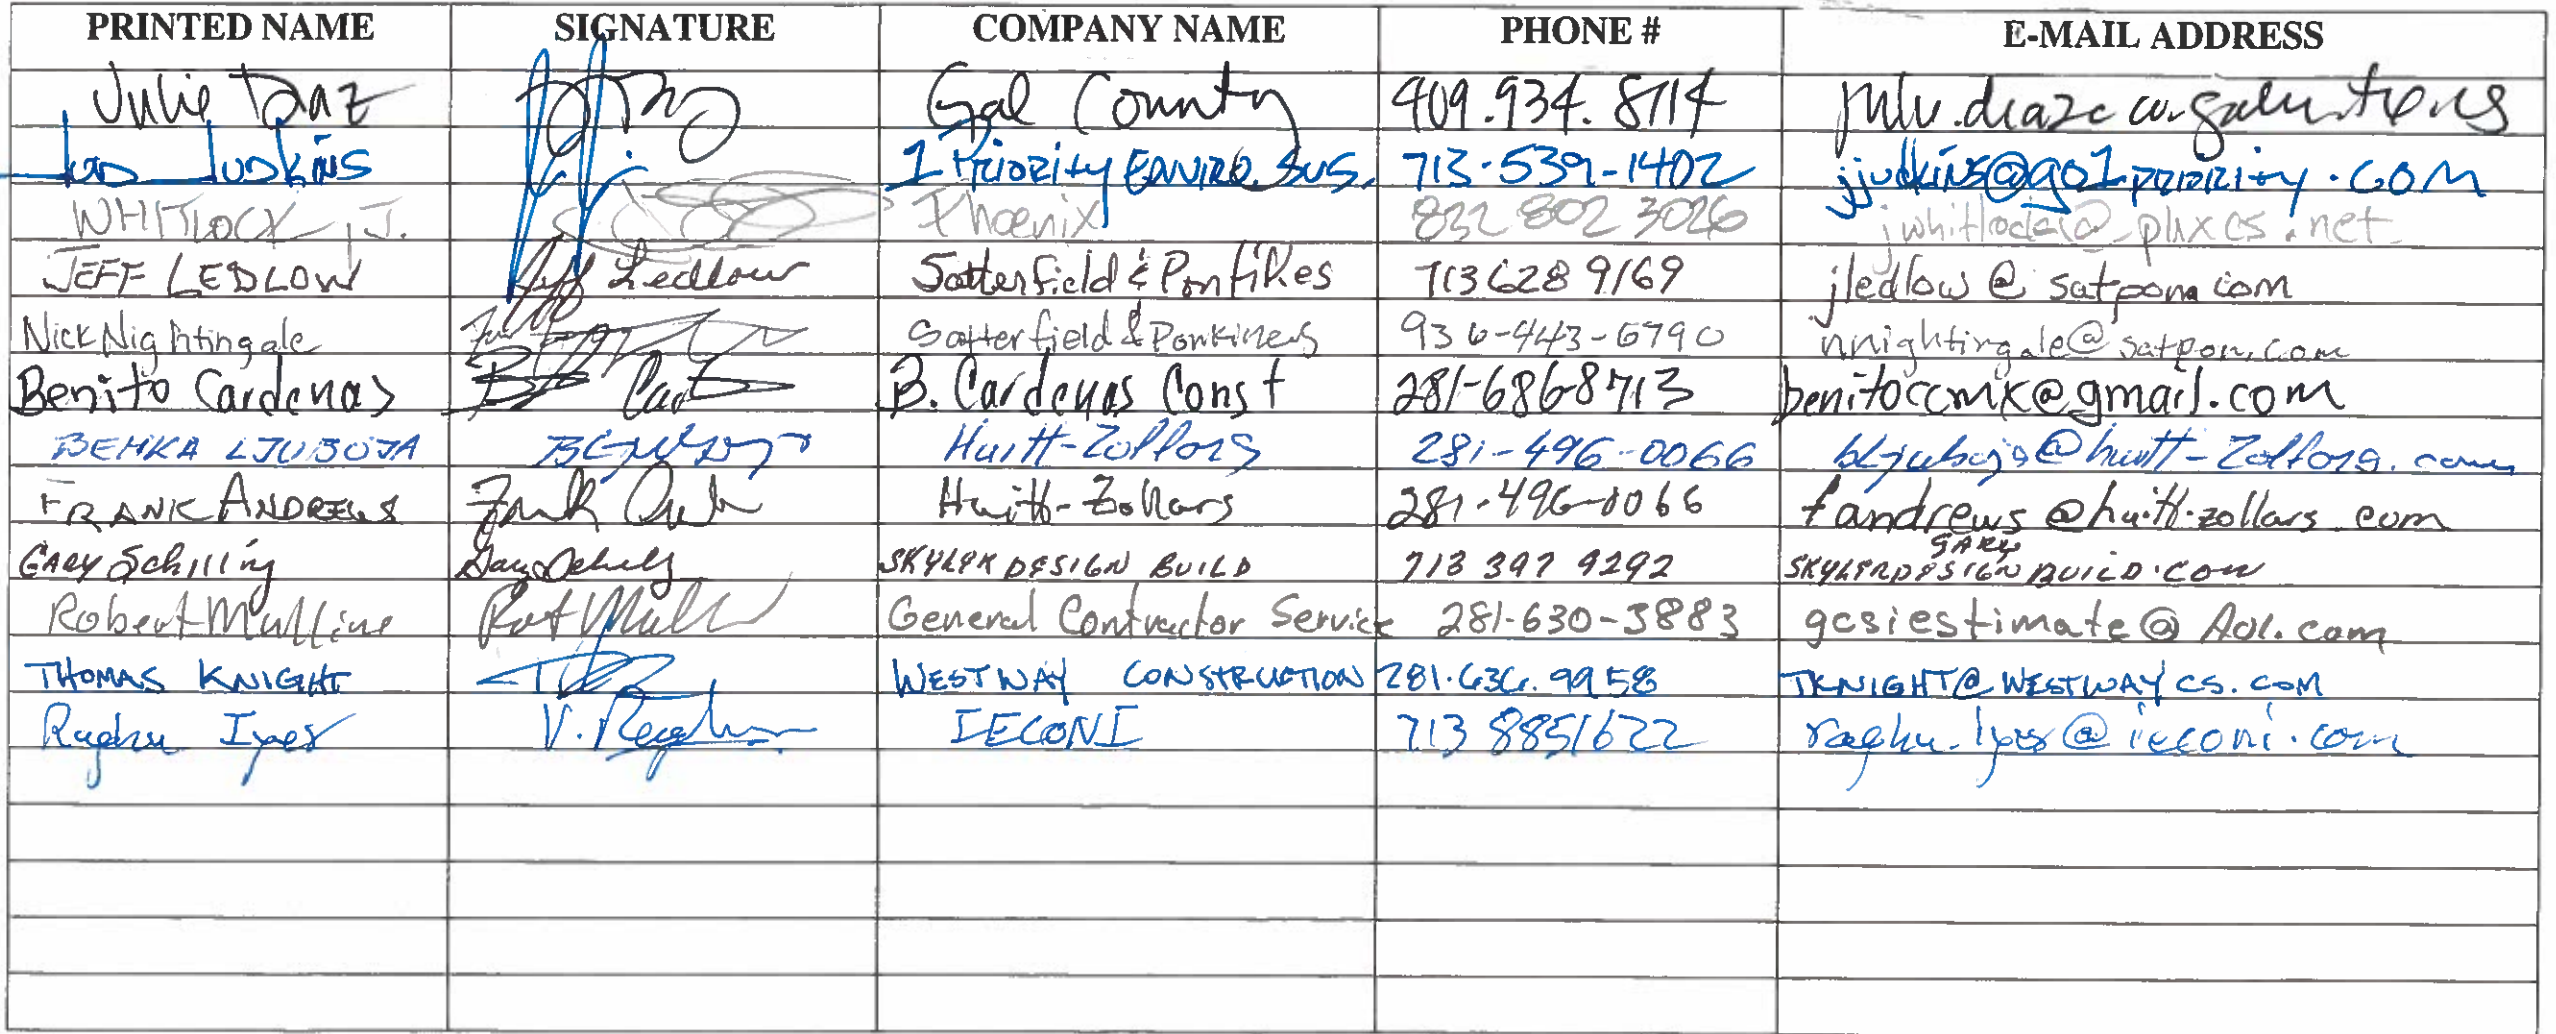 PRINTED NAME SIGNATURE COMPANY NAME PHONE # E-MAIL ADDRESS
Julie Diaz Gal County 409.934.8114
Judkins 1 Priority Enviro. Svs. 713-539-1402 jjudkins@go1priority.com
WHITLOCK, J. Phoenix 832 802 3026 jwhitlock@phxcs.net
JEFF LEDLOW Jeff Ledlow Satterfield & Pontikes 713 628 9169 jledlow@satpon.com
Nick Nightingale Satterfield & Pontikes 936-443-6790 nnightingale@satpon.com
Benito Cardenas B. Cardenas Const 281-686-8713 benitoccmk@gmail.com
BEHKA LJUBOJA Huitt-Zollars 281-496-0066 bljuboja@huitt-zollars.com
FRANK ANDREWS Huitt-Zollars 281-496-0066 fandrews@huitt-zollars.com
GARY Schilling SKYLER DESIGN BUILD 713 397 9292 GARY SKYLERDESIGNBUILD.COM
Robert Mulline General Contractor Service 281-630-3883 gcsiestimate@Aol.com
THOMAS KNIGHT WESTWAY CONSTRUCTION 281.636.9958 TKNIGHT@WESTWAYCS.COM
Raghu Iyer V. Raghu IECONI 713 8851622 raghu.Iyer@ieconi.com